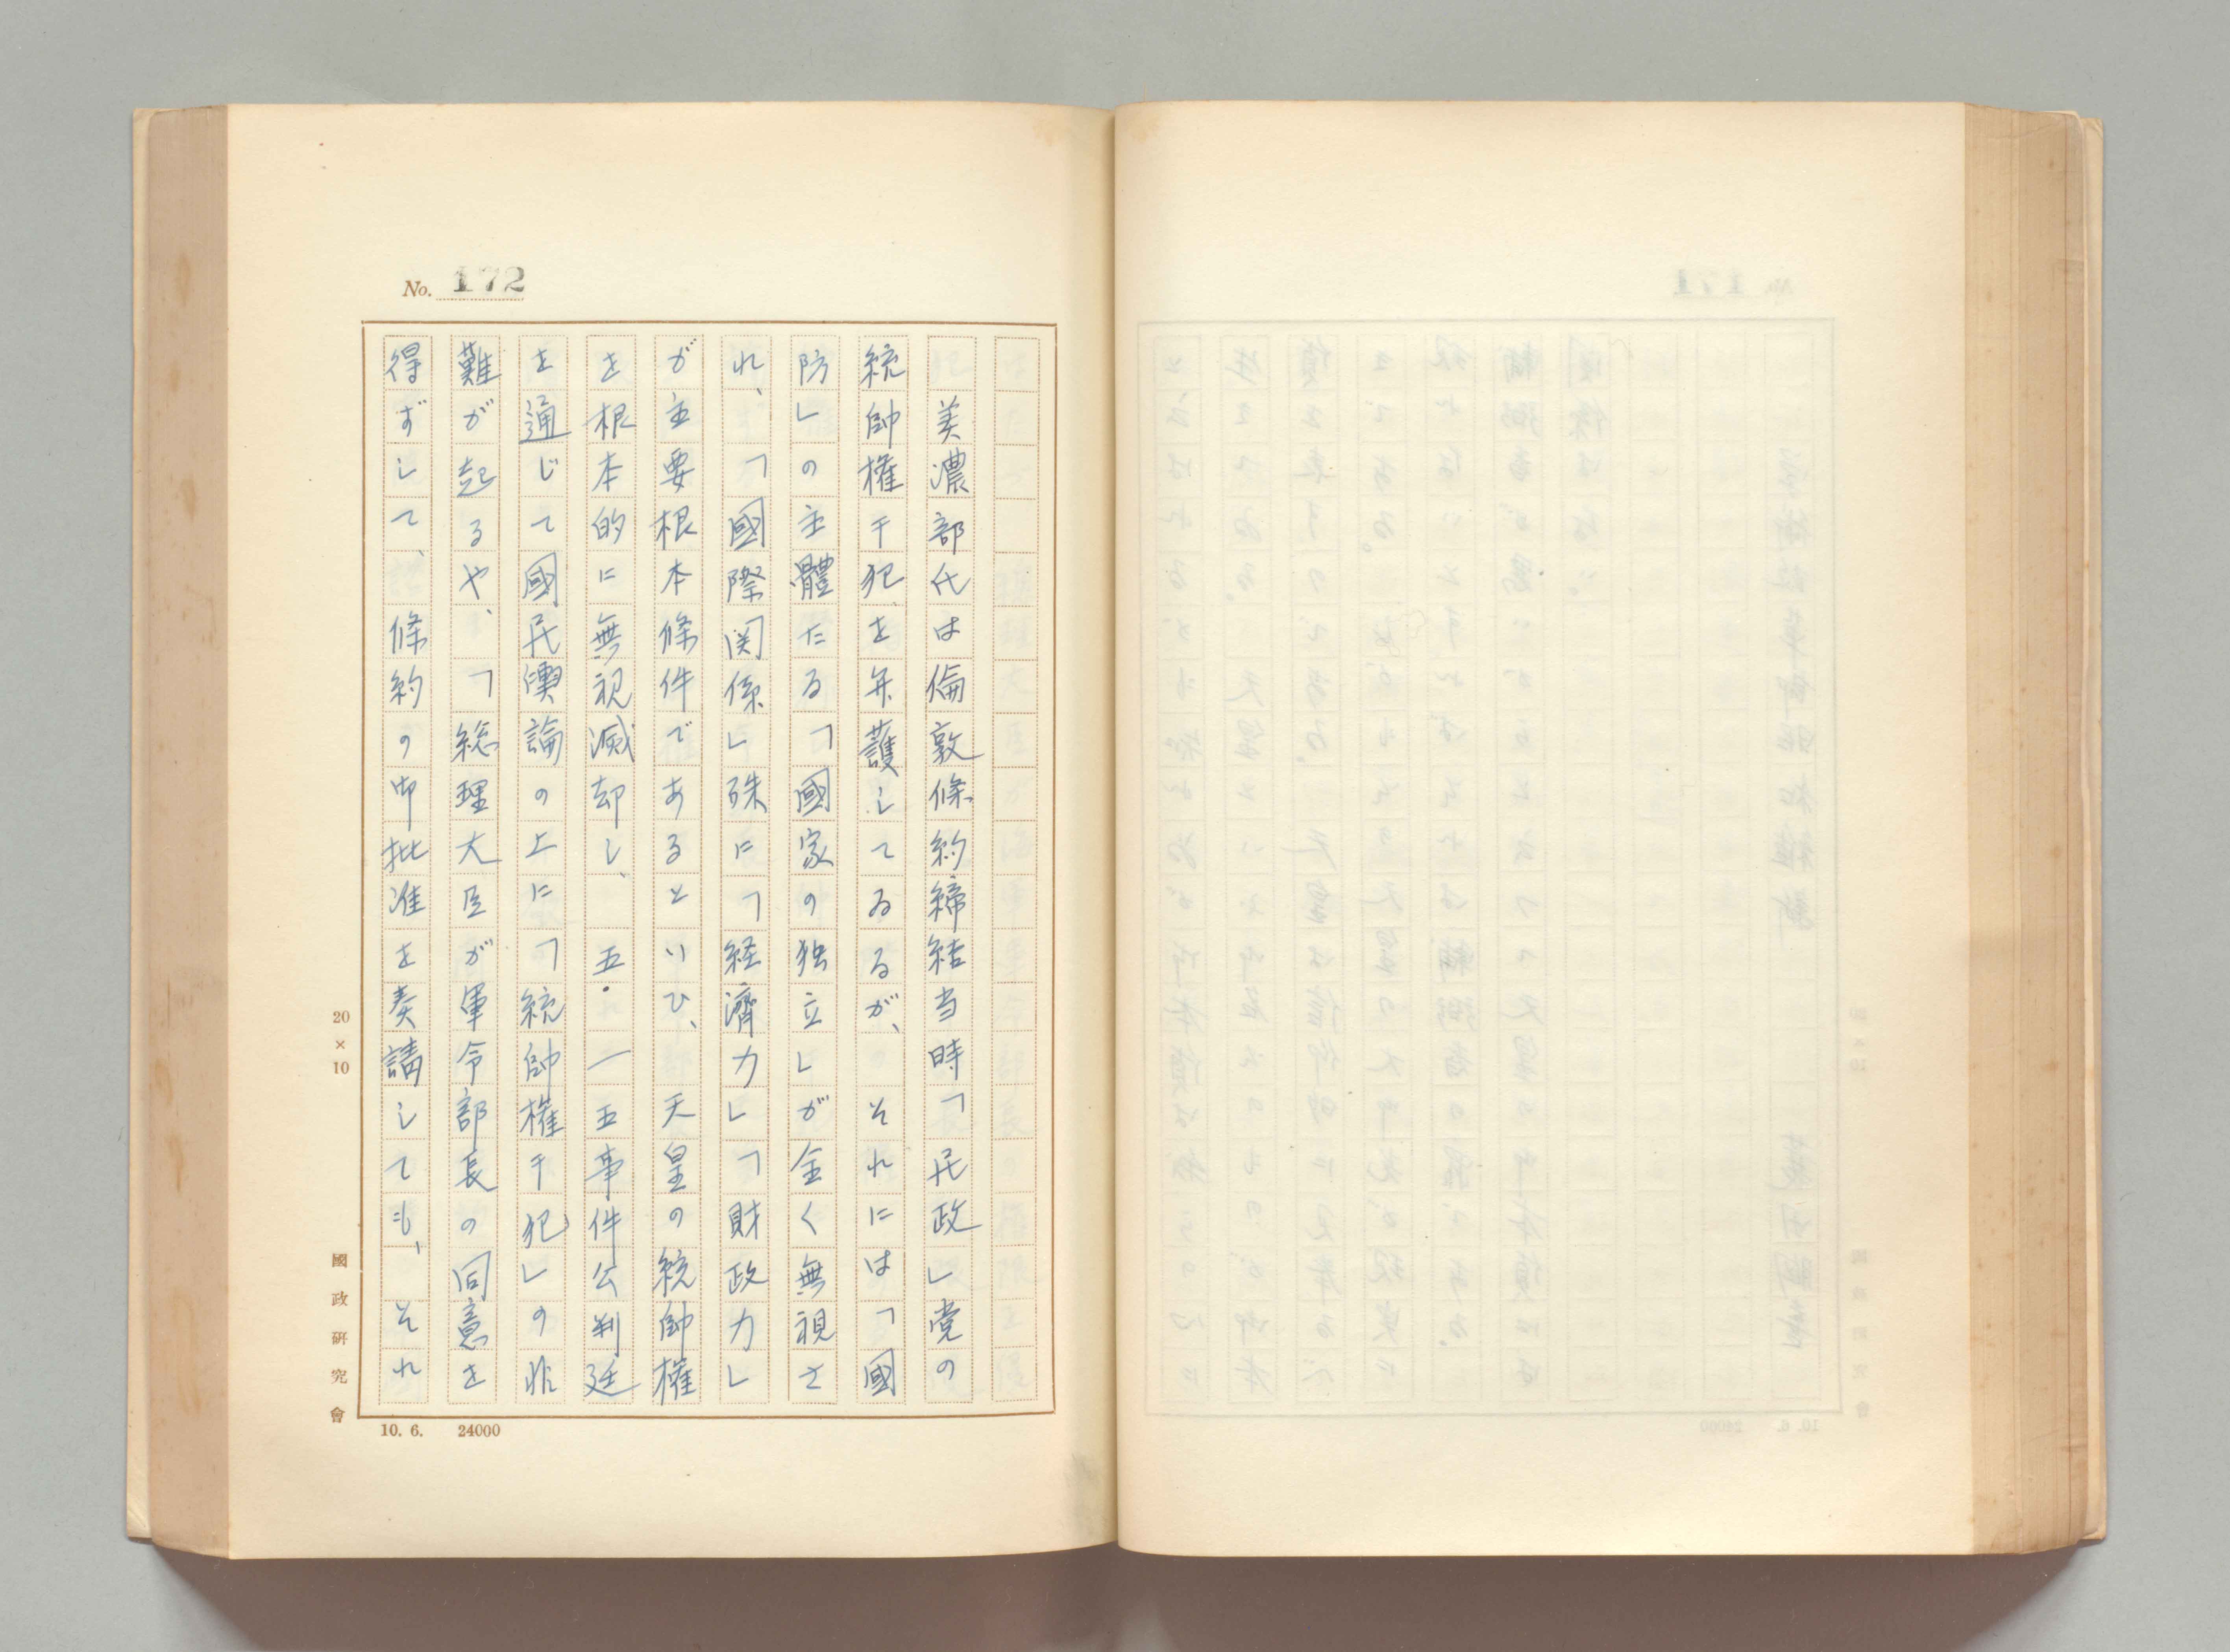 No. 172
美濃部氏は倫敦條約締結当時「民政」党の
統帥権干犯を弁護してゐるが、それには「國
防」の主體たる「國家の独立」が全く無視さ
れ、「國際関係」殊に「経濟力」「財政力」
が主要根本條件であるといひ、天皇の統帥権
を根本的に無視滅却し、五・一五事件公判廷
を通じて國民輿論の上に「統帥権干犯」の非
難が起るや、「総理大臣が軍令部長の同意を
得ずして、條約の御批准を奏請しても、それ
20×10
國政研究會
10. 6. 24000